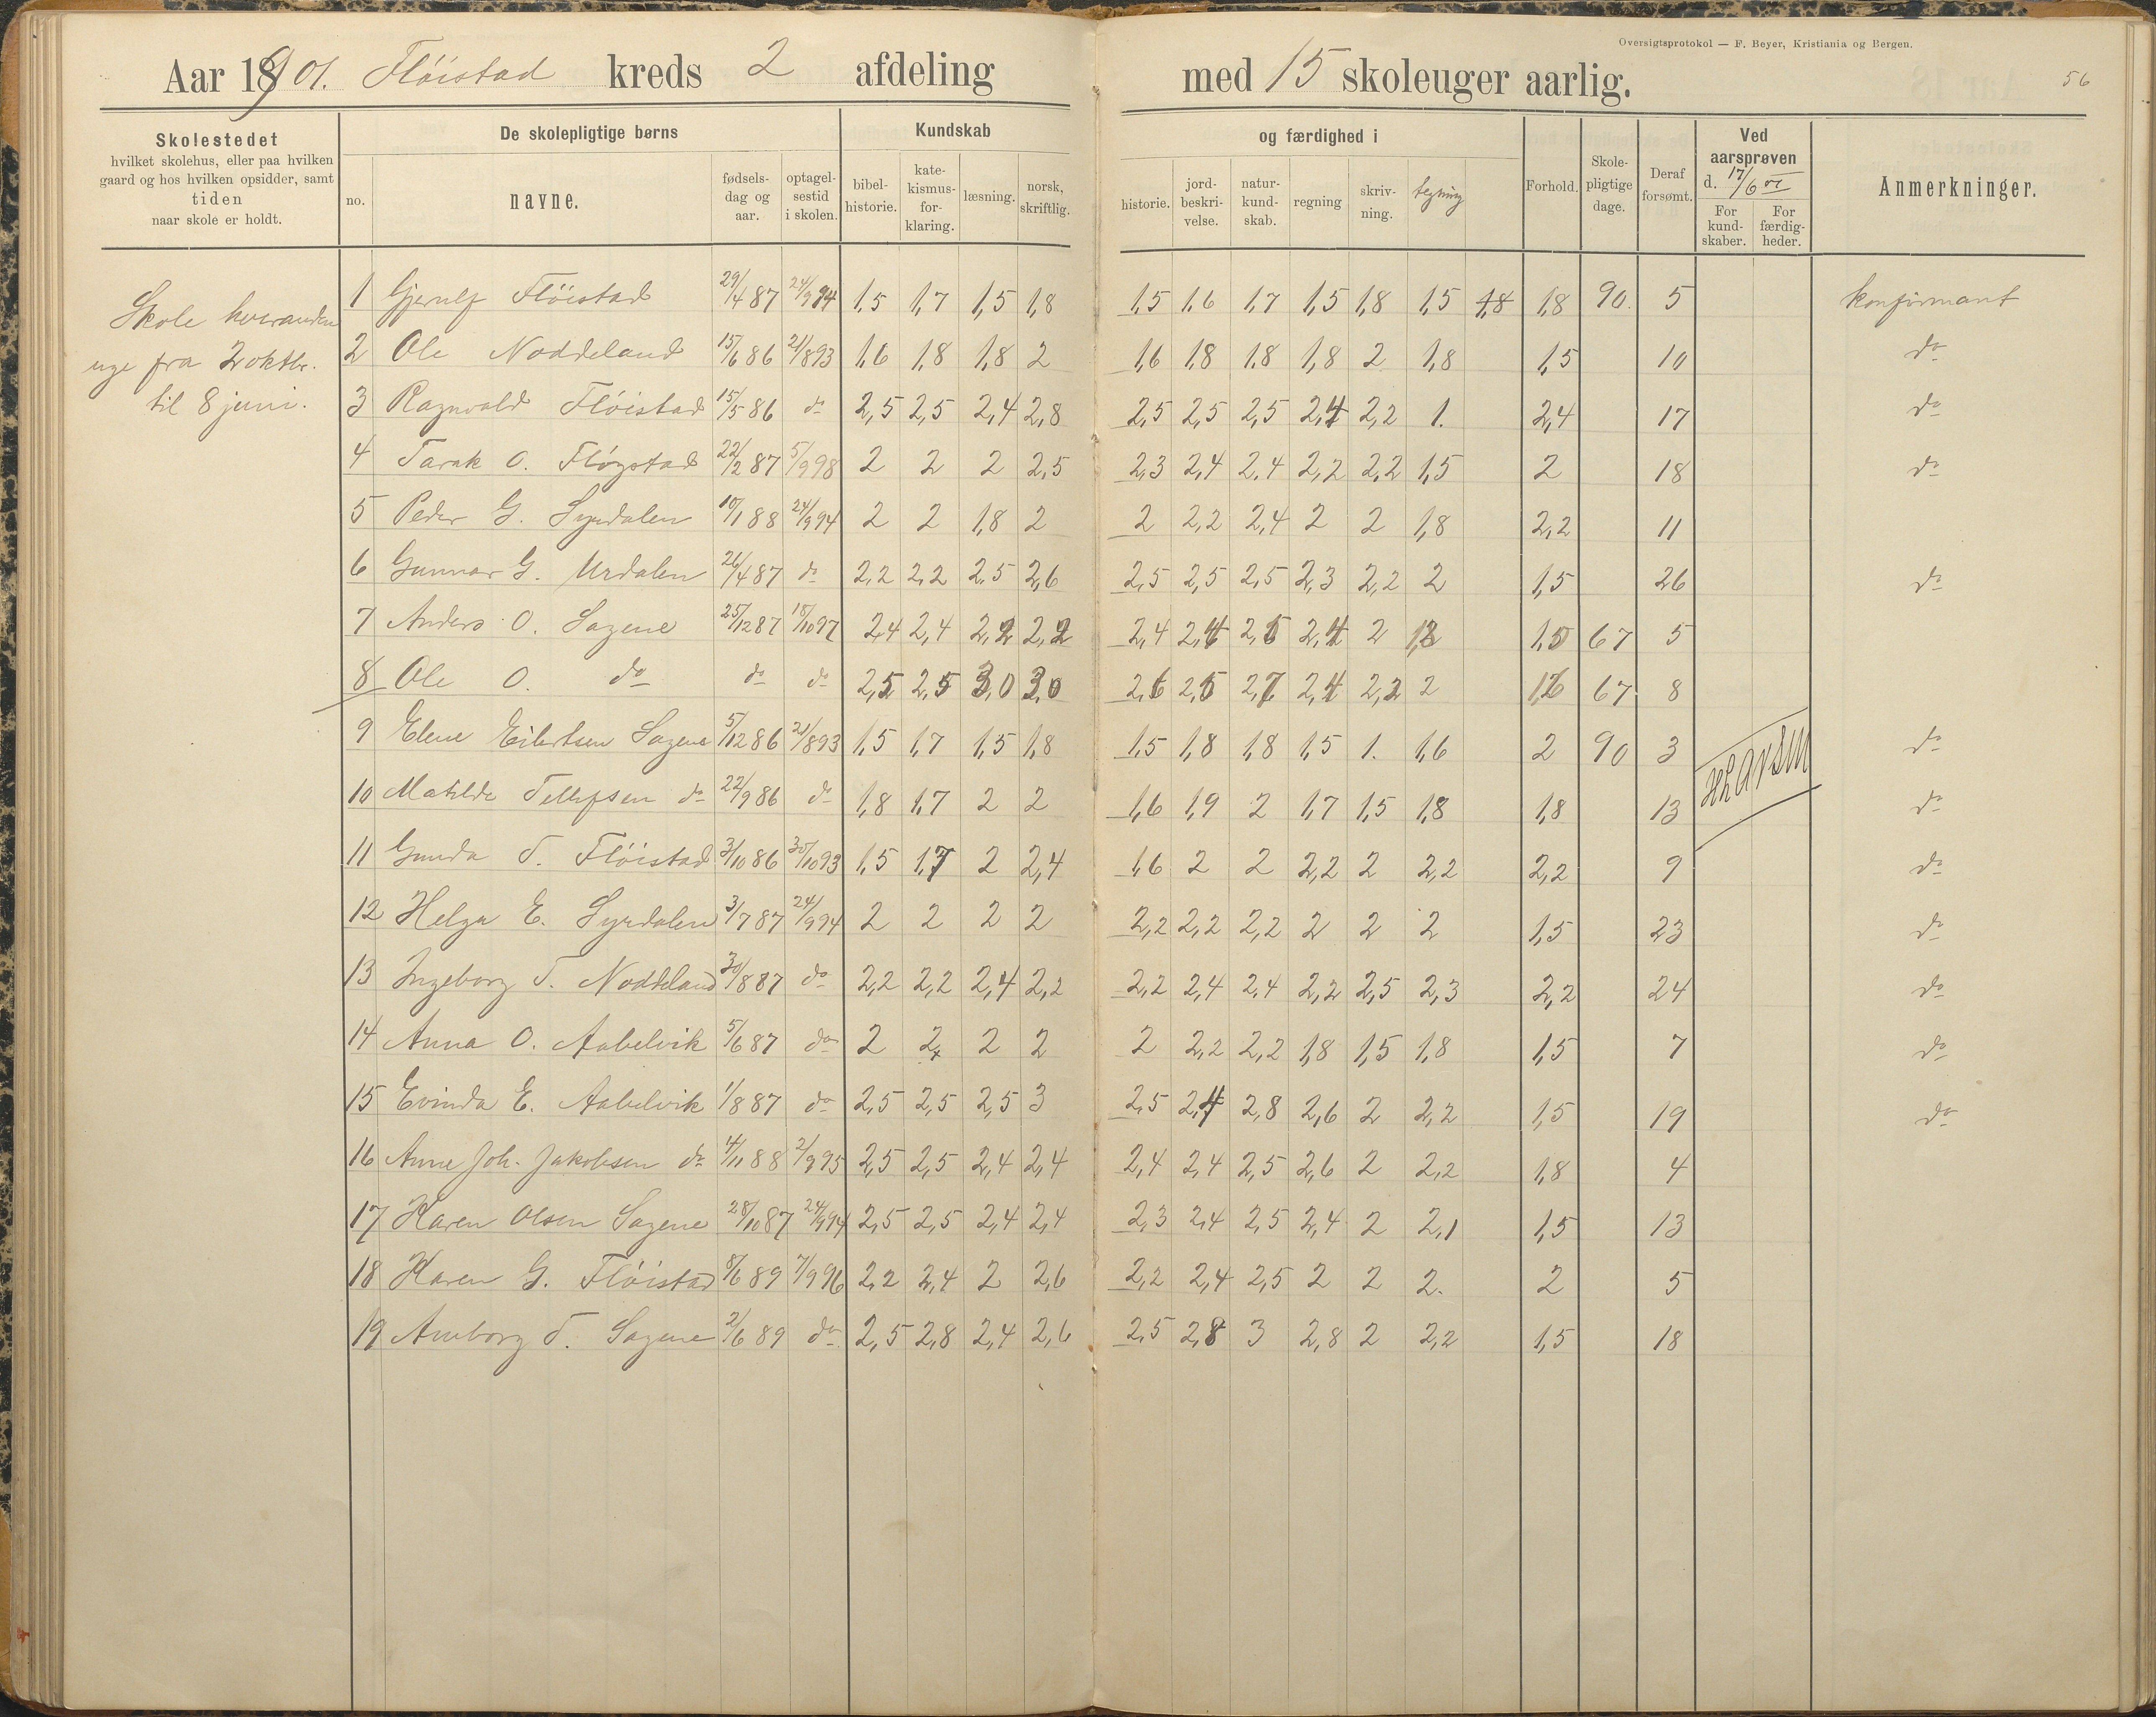 Oversigtsprotokol — F. Beyer, Kristiania og Bergen.
Aar 1901. Flöistad kreds 2 afdeling med 15 skoleuger aarlig. 56
Skolestedet hvilket skolehus, eller paa hvilken gaard og hos hvilken opsidder, samt tiden naar skole er holdt.
De skolepligtige børns
no. navne. fødsels-dag og aar. optagel-sestid i skolen.
Kundskab og færdighed i
bibel-historie. kate-kismus-for-klaring. læsning. norsk, skriftlig. historie. jord-beskri-velse. natur-kund-skab. regning skriv-ning. tegning
Forhold. Skole-pligtige dage. Deraf forsømt.
Ved aarsprøven d. 17/6 01
For kund-skaber. For færdig-heder.
Anmerkninger.
Skole hveranden
uge fra 2 oktbr.
til 8 juni.
1 Gjerulf Flöistad 29/4 87 24/9 94 1,5 1,7 1,5 1,8 1,5 1,6 1,7 1,5 1,8 1,5 1,8 1,8 90. 5 konfirmant
2 Ole Noddeland 15/6 86 21/8 93 1,6 1,8 1,8 2 1,6 1,8 1,8 1,8 2 1,8 1,5 10 do
3 Ragnvald Flöistad 15/5 86 do 2,5 2,5 2,4 2,8 2,5 2,5 2,5 2,4 2,2 1. 2,4 17 do
4 Tarak O. Fløystad 22/2 87 5/9 98 2 2 2 2,5 2,3 2,4 2,4 2,2 2,2 1,5 2 18 do
5 Peder G. Syrdalen 10/1 88 24/9 94 2 2 1,8 2 2 2,2 2,4 2 2 1,8 2,2 11
6 Gunnar G. Urdalen 26/4 87 do 2,2 2,2 2,5 2,6 2,5 2,5 2,5 2,3 2,2 2 1,5 26 do
7 Anders O. Sagene 25/12 87 18/10 97 2,4 2,4 2,2 2,2 2,4 2,4 2,5 2,4 2 1,8 1,5 67 5
8 Ole O. do do do 2,5 2,5 3,0 3,0 2,6 2,5 2,7 2,4 2,2 2 1,6 67 8
9 Elene Eilertsen Sagene 5/12 86 21/8 93 1,5 1,7 1,5 1,8 1,5 1,8 1,8 1,5 1. 1,6 2 90 3 do
10 Matilde Tellefsen do 22/9 86 do 1,8 1,7 2 2 1,6 1,9 2 1,7 1,5 1,8 1,8 13 do
11 Gunda T. Flöistad 3/10 86 30/10 93 1,5 1,7 2 2,4 1,6 2 2 2,2 2 2,2 2,2 9 do
12 Helga E. Syrdalen 3/7 87 24/9 94 2 2 2 2 2,2 2,2 2,2 2 2 2 1,5 23 do
13 Ingeborg T. Noddeland 30/8 87 do 2,2 2,2 2,4 2,2 2,2 2,4 2,4 2,2 2,5 2,3 2,2 24 do
14 Anna O. Aabelvik 5/6 87 do 2 2 2 2 2 2,2 2,2 1,8 1,5 1,8 1,5 7 do
15 Evinda E. Aabelvik 1/8 87 do 2,5 2,5 2,5 3 2,5 2,4 2,8 2,6 2 2,2 1,5 19 do
16 Anne Joh. Jakobsen do 4/11 88 2/9 95 2,5 2,5 2,4 2,4 2,4 2,4 2,5 2,6 2 2,2 1,8 4
17 Karen Olsen Sagene 28/10 87 24/9 94 2,5 2,5 2,4 2,4 2,3 2,4 2,5 2,4 2 2,1 1,5 13
18 Karen G. Flöistad 8/6 89 7/9 96 2,2 2,4 2 2,6 2,2 2,4 2,5 2 2 2. 2 5
19 Amborg T. Sagene 2/6 89 do 2,5 2,8 2,4 2,6 2,5 2,8 3 2,8 2 2,2 1,5 18